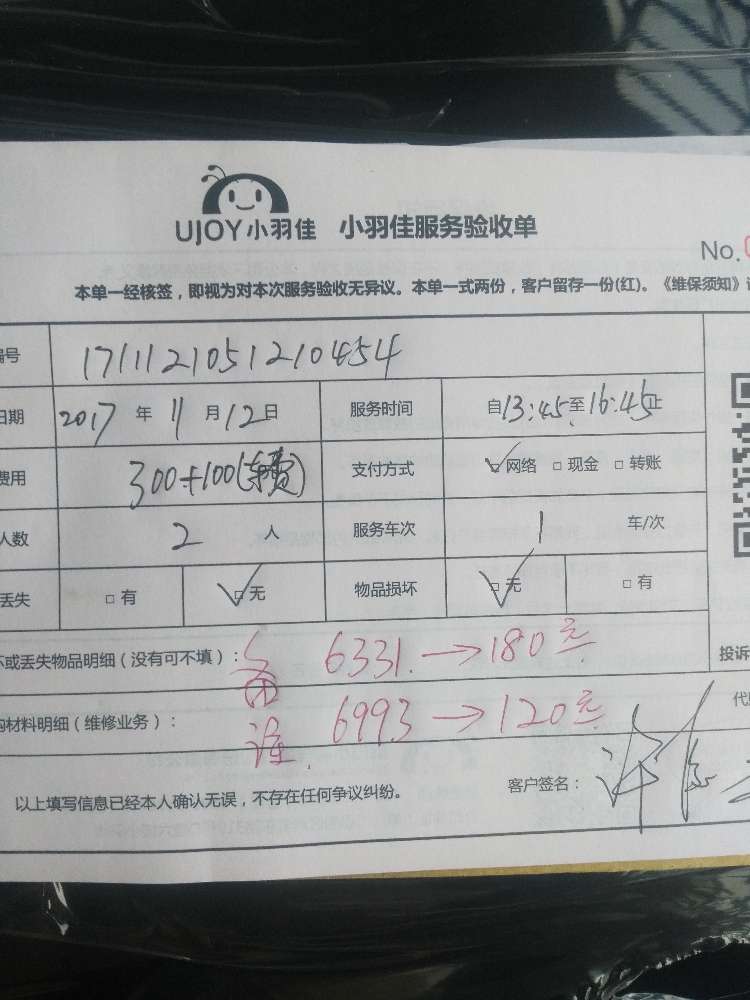 UJOY小羽佳 小羽佳服务验收单
No.
本单一经核签，即视为对本次服务验收无异议。本单一式两份，客户留存一份(红)。《维保须知》
编号 1711121051210454
日期 2017 年 11 月 12 日 服务时间 自 13:45 至 16:45 止
费用 300+100(车费) 支付方式 ☑网络 □现金 □转账
人数 2 人 服务车次 1 车/次
丢失 □有 ☑无 物品损坏 ☑无 □有
坏或丢失物品明细（没有可不填）： 6331 → 180元
投诉
材料明细（维修业务）： 6993 → 120元
以上填写信息已经本人确认无误，不存在任何争议纠纷。 客户签名：